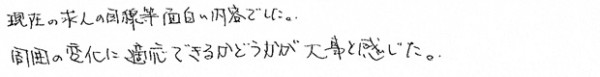 現在の求人の目標等面白い内容でした。
周囲の変化に適応できるかどうかが大事と感じた。